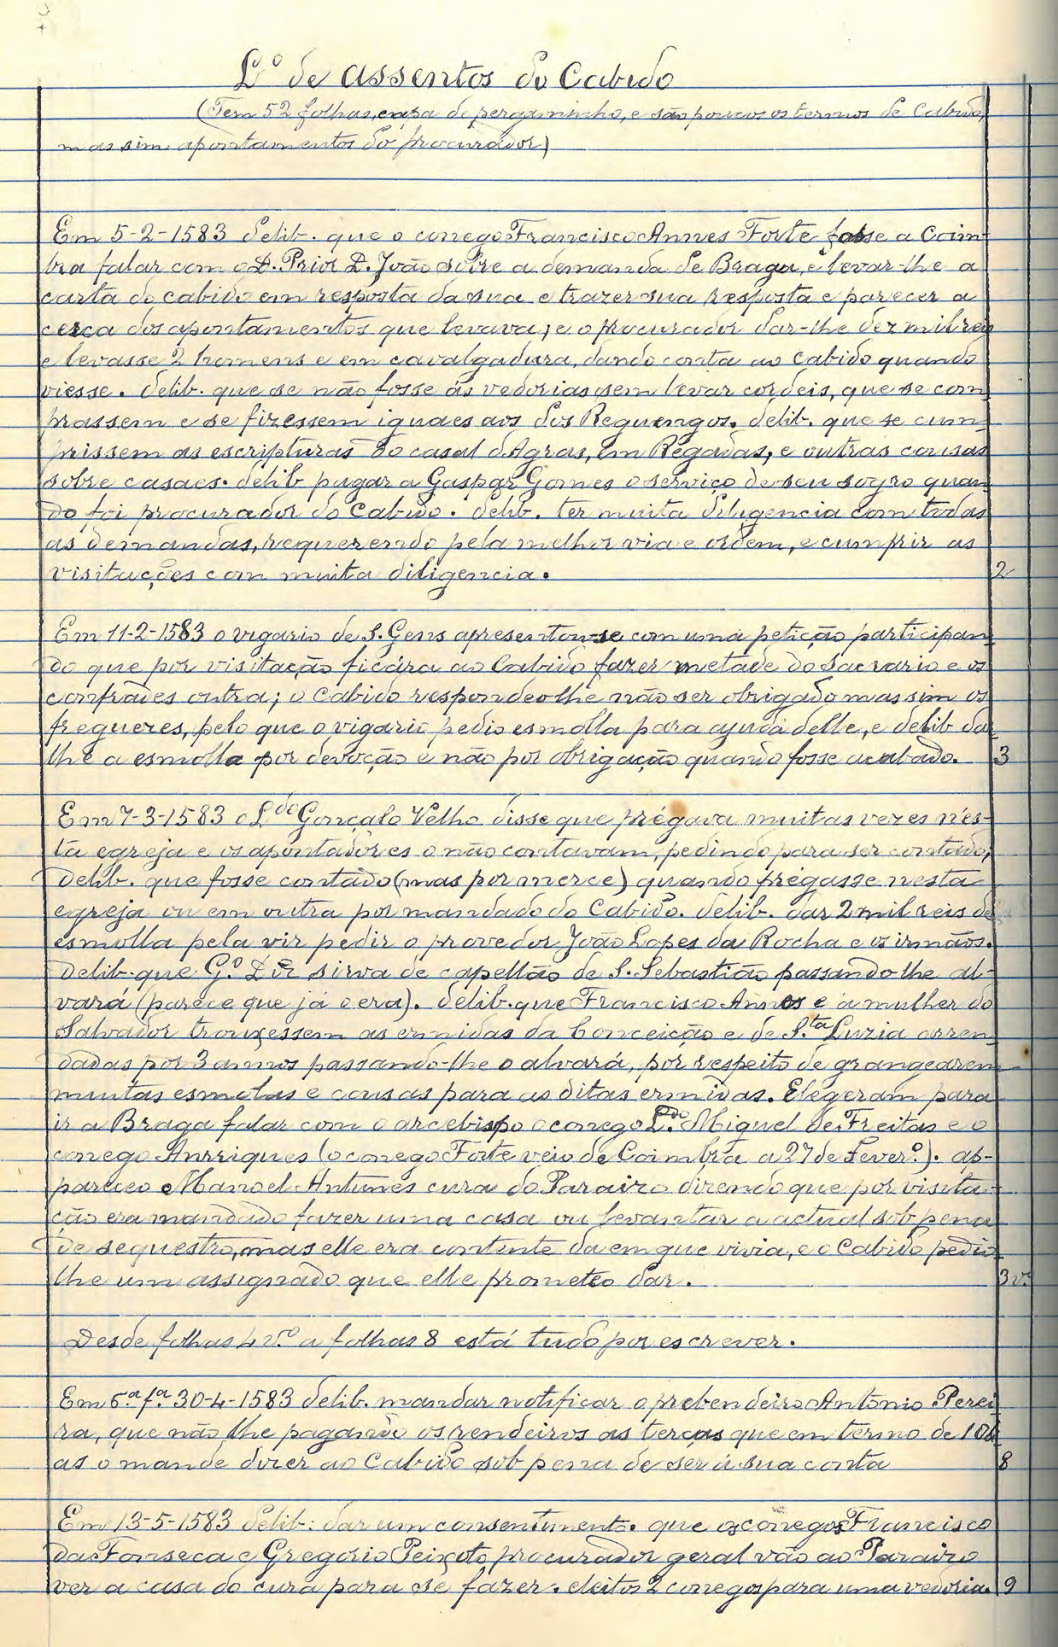 L.º de assentos do Cabido
(Tem 52 folhas, capa de pergaminho, e são poucos os termos de Cabido,
mas sim apontamentos do procurador)
Em 5-2-1583 delib. que o conego Francisco Annes Forte fosse a Coim-
bra falar com o D. Prior D. João sobre a demanda de Braga, e levar-lhe a
carta do cabido em resposta da sua e trazer sua resposta e parecer a
cerca dos apontamentos que levava; e o procurador dar-lhe dez mil reis
e levasse 2 homens e em cavalgadura, dando conta ao Cabido quando
viesse. delib. que se não fosse ás vedorias sem levar cordeis, que se com-
prassem e se fizessem iguaes aos dos Reguengos. delib. que se cum-
prissem as escripturas do casal d'Agras, em Regadas, e outras cousas
sobre casaes. delib pagar a Gaspar Gomes o serviço de seu sogro quan-
do foi procurador do Cabido. delib. ter muita diligencia com todas
as demandas, requerendo pela melhor via e ordem, e cumprir as
visitações com muita diligencia.
2
Em 11-2-1583 o vigario de S. Gens apresentou-se com uma petição participan-
do que por visitação ficára ao Cabido fazer metade do Sacrario e os
confrades outra; o Cabido respondeo lhe não ser obrigado mas sim os
freguezes, pelo que o vigario pedio esmolla para ajuda delle, e delib dar
lhe a esmolla por devoção e não por obrigação quando fosse acabado.
3
Em 7-3-1583 o L.do Gonçalo Velho disse que prégava muitas vezes n'es-
ta egreja e os apontadores o não contavam, pedindo para ser contado;
delib. que fosse contado (mas por merce) quando prégasse nesta
egreja ou em outra por mandado do Cabido. delib. dar 2 mil reis de
esmolla pela vir pedir o provedor João Lopes da Rocha e os irmãos.
Delib. que G.º Diz sirva de capellão de S. Sebastião passando-lhe al-
vará (parece que já o era). delib. que Francisco Annes e a mulher do
Salvador trouxessem as ermidas da Conceição e de S.ta Luzia arren-
dadas por 3 annos passando-lhe o alvará, por respeito de grangearem
muitas esmolas e cousas para as ditas ermidas. Elegeram para
ir a Braga falar com o arcebispo o conego L.do Miguel de Freitas e o
conego Anrriques (o conego Forte veio de Coimbra a 27 de Fever.º). ap-
pareceo Manoel Antunes cura do Paraizo dizendo que por visita-
ção era mandado fazer uma casa ou levantar a actual sob pena
de sequestro, mas elle era contente da em que vivia, e o Cabido pedio
lhe um assignado que elle prometeo dar.
3 v.
Desde folhas 4 v.º a folhas 8 está tudo por escrever.
Em 6.ª f.ª 30-4-1583 delib. mandar notificar o prebendeiro Antonio Perei-
ra, que não lhe pagando os rendeiros as terças que em termo de 10 di-
as o mande dizer ao Cabido sob pena de ser á sua conta
8
Em 13-5-1583 delib: dar um consentimento. que os conegos Francisco
da Fonseca e Gregorio Peixoto procurador geral vão ao Paraizo
ver a casa do cura para se fazer. eleitos 2 conegos para uma vedoria.
9